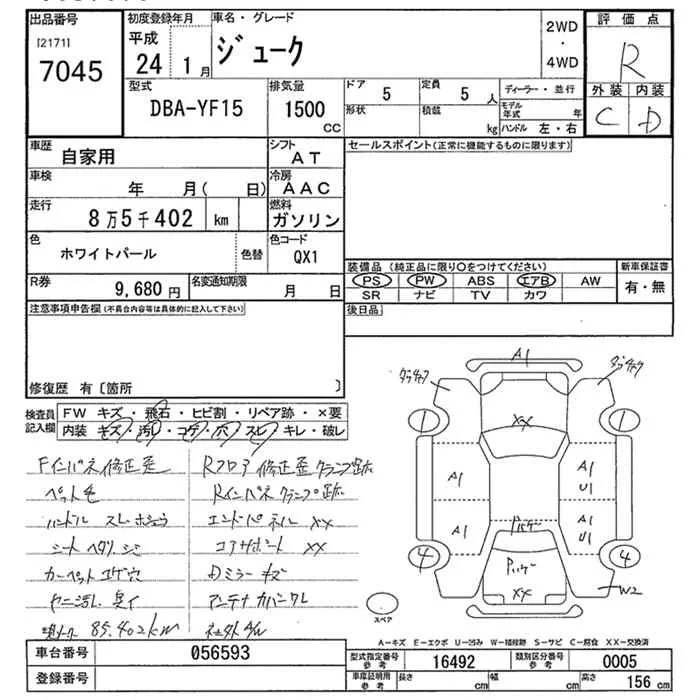 出品番号
[2171]
7045
初度登録年月
平成
24 1 月
車名・グレード
ジューク
2WD
・
4WD
評価点
R
外装 内装
C D
型式
DBA-YF15
排気量
1500
CC
ドア
5
定員
5 人
形状
積載
kg
ディーラー・並行
モデル年式 年
ハンドル 左・右
車歴
自家用
シフト
AT
セールスポイント(正常に機能するものに限ります)
車検
年 月( 日)
冷房
AAC
走行
8万5千402 km
燃料
ガソリン
色
ホワイトパール
色替
色コード
QX1
装備品 (純正品に限り○をつけてください)
PS PW ABS エアB AW
SR ナビ TV カワ
新車保証書
有・無
R券
9,680 円
名変通知期限
月 日
後日品
注意事項申告欄(不具合内容等は具体的に記入して下さい)
修復歴 有〔箇所 〕
検査員
記入欄
FW キズ・飛石・ヒビ割・リペア跡・×要
内装 キズ・汚れ・コゲ・穴・スレ・キレ・破レ
Fインパネ修正歪
ペット毛
ハンドル スレ
シート ヘタリ シミ
カーペット コゲ穴
ヤニ汚レ 臭イ
85.402km
Rフロア修正歪クランプ跡
Rインパネ クランプ跡
エンドパネル XX
コアサポート XX
Dミラー キズ
アンテナカバークレ
社外A/W
A1
XX
1
1
A1
A1
U1
A1
A1
U1
4
4
XX
W2
スペア
A-キズ E-エクボ U-凹み W-補修跡 S-サビ C-腐食 XX-交換済
車台番号
056593
登録番号
型式指定番号
参考
16492
類別区分番号
参考
0005
車庫証明用
参考
長さ cm
幅 cm
高さ 156 cm